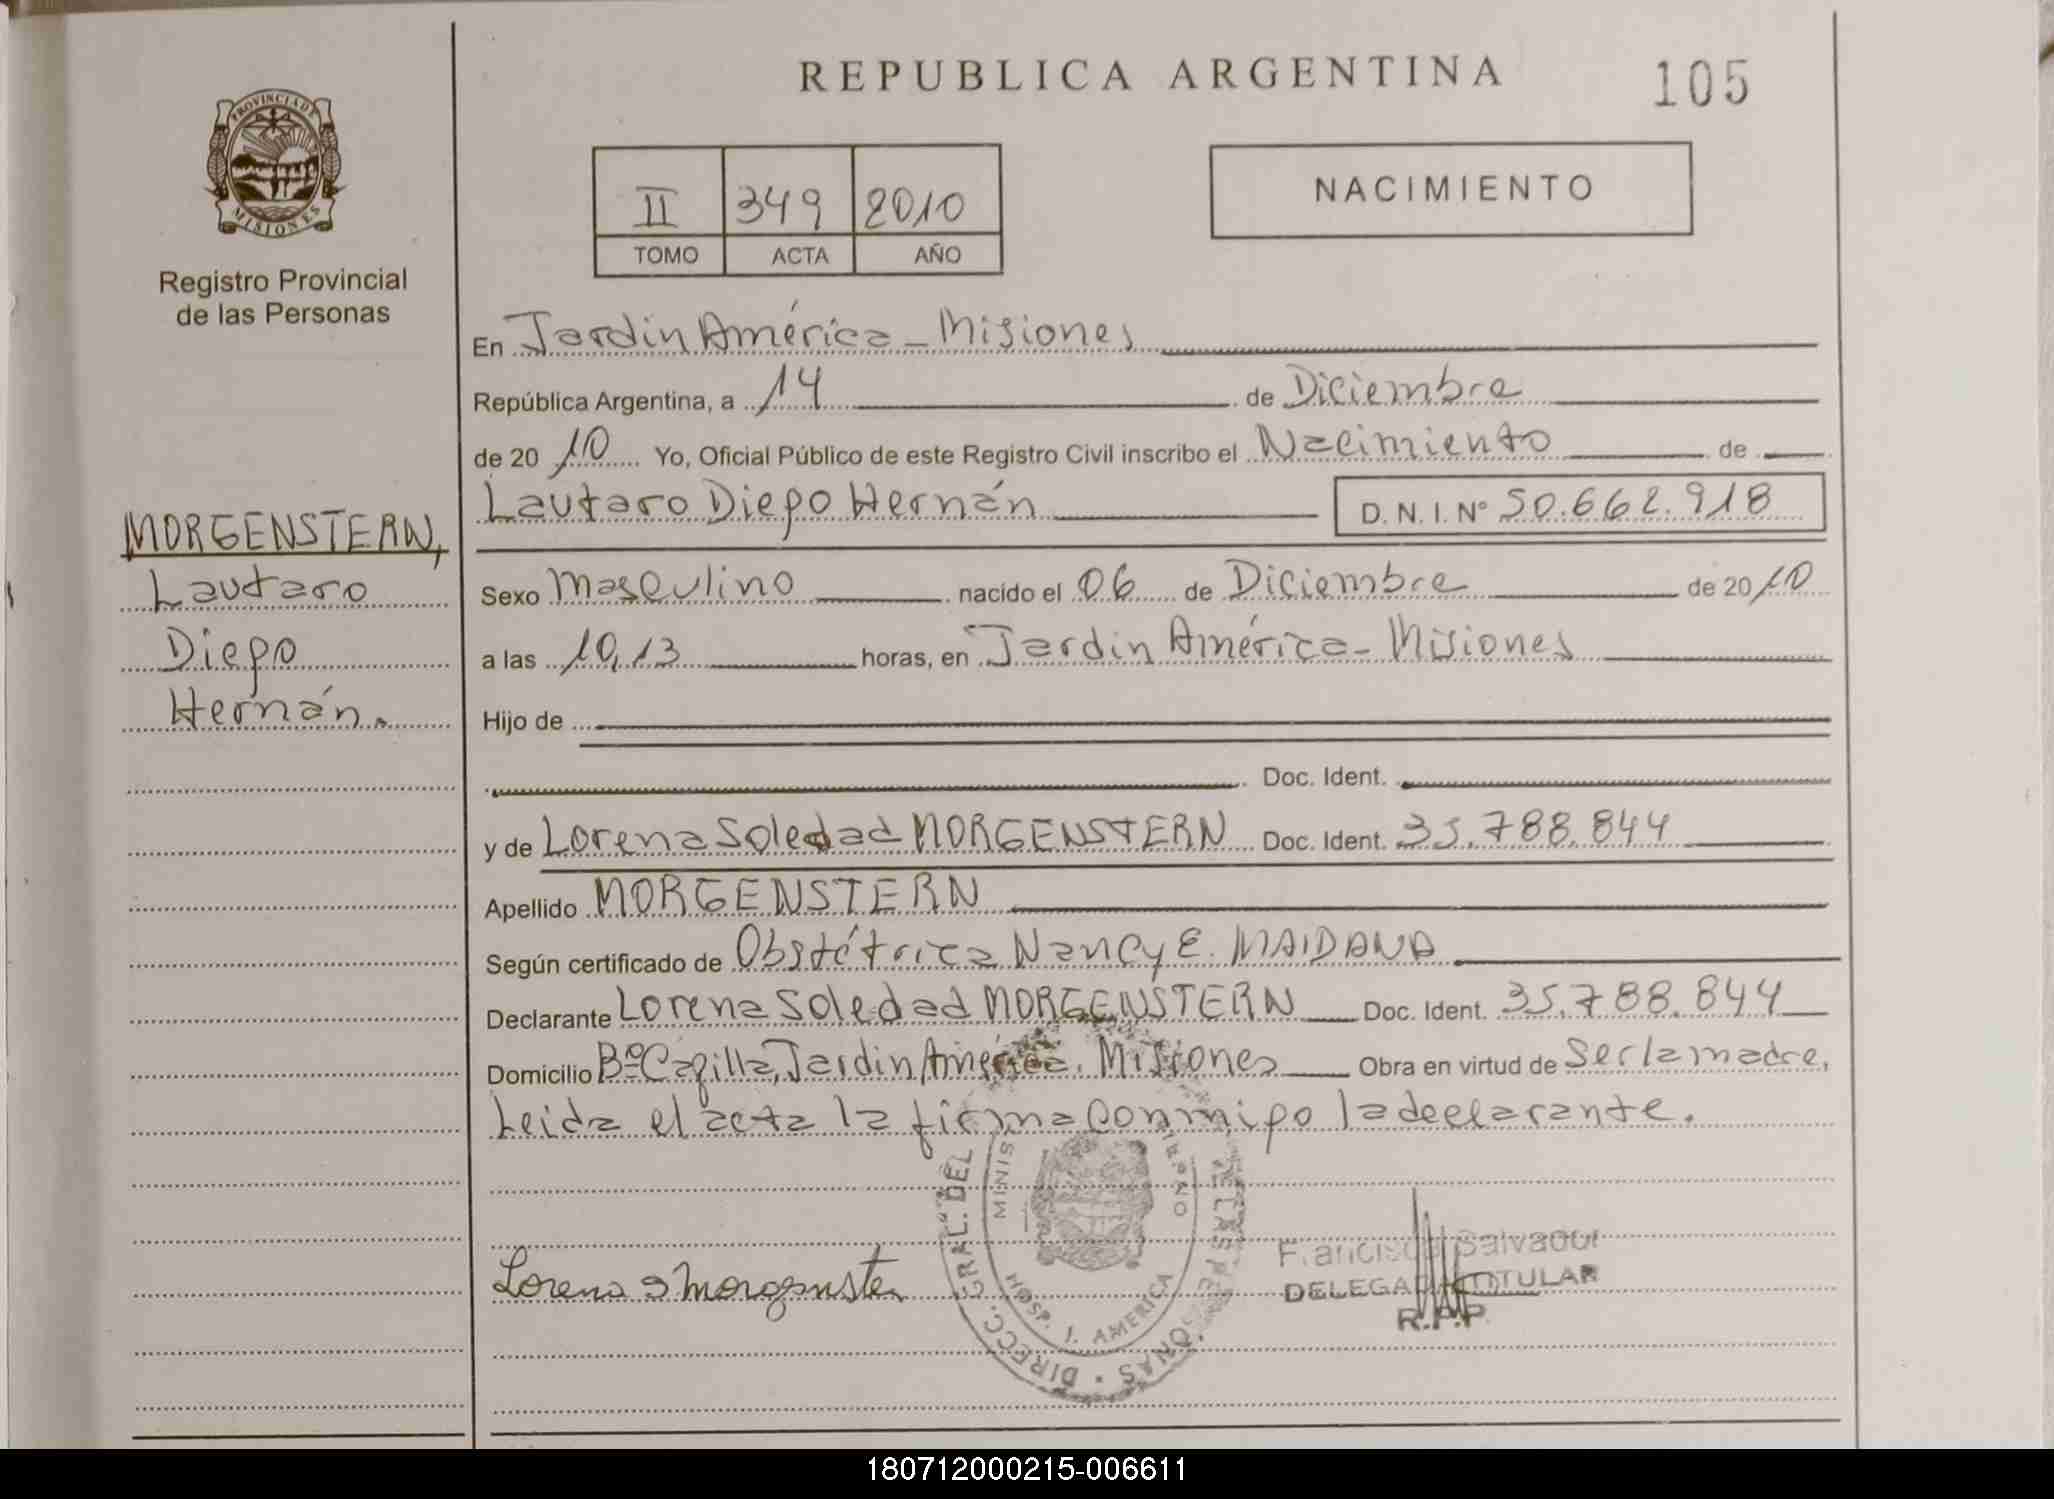 REPUBLICA ARGENTINA
105
PROVINCIA DE
MISIONES
Registro Provincial
de las Personas
II 349 2010
TOMO ACTA AÑO
NACIMIENTO
MORGENSTERN,
Lautaro
Diego
Hernán.
En Jardin América - Misiones
República Argentina, a 14 de Diciembre
de 2010 Yo, Oficial Público de este Registro Civil inscribo el Nacimiento de
Lautaro Diego Hernán D.N.I. Nº 50.662.918
Sexo Masculino nacido el 06 de Diciembre de 2010
a las 10,13 horas, en Jardin América - Misiones
Hijo de
Doc. Ident.
y de Lorena Soledad MORGENSTERN Doc. Ident. 35.788.844
Apellido MORGENSTERN
Según certificado de Obstétrica Nancy E. MAIDANA
Declarante Lorena Soledad MORGENSTERN Doc. Ident. 35.788.844
Domicilio Bº Capilla, Jardin América. Misiones Obra en virtud de Ser la madre,
Leida el acta la firma conmigo la declarante.
Lorena S Morgenster
DIRECC. GRAL. DEL
PERSONAS
MINIS
HOSP. J. AMERICA
Francisco Salvador
DELEGADO TITULAR
R.P.P.
180712000215-006611